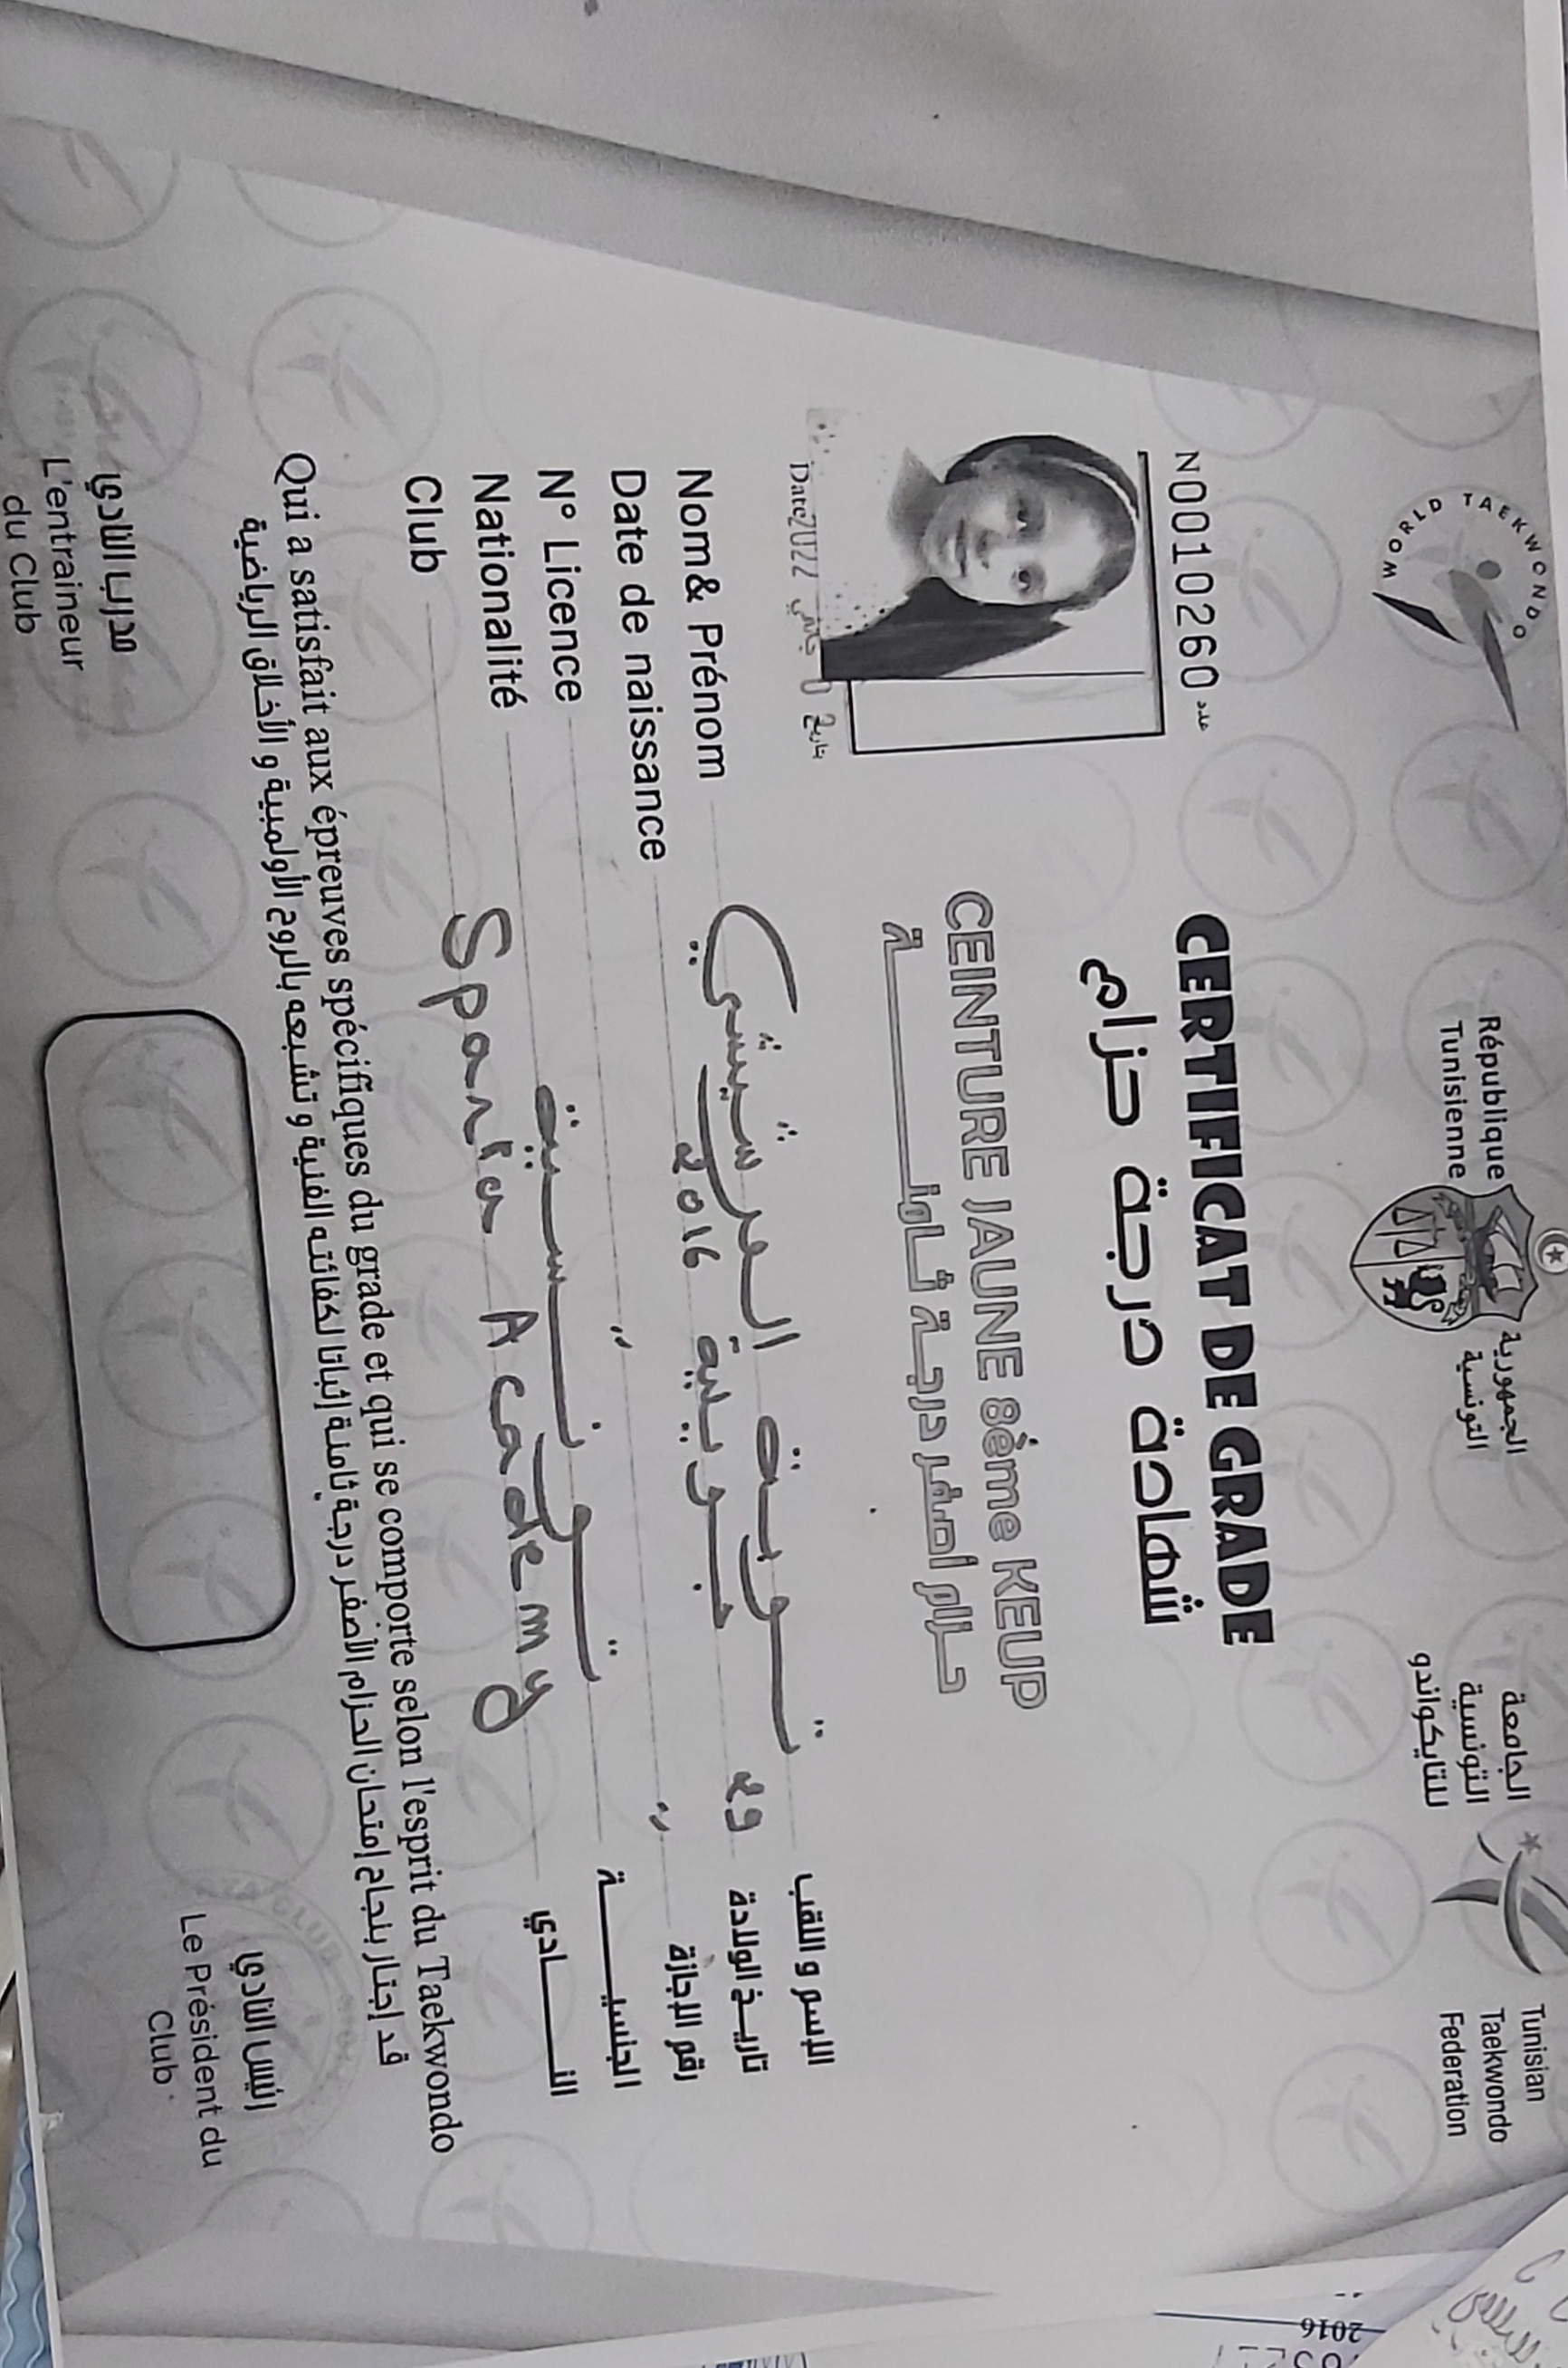 WORLD TAEKWONDO
République
Tunisienne
الجمهورية
التونسية
الجامعة
التونسية
للتايكواندو
Tunisian
Taekwondo
Federation
CERTIFICAT DE GRADE
شهادة درجة حزام
N0010260 عدد
CEINTURE JAUNE 8ème KEUP
حزام أصفر درجة ثامنة
Date 2022 جانفي تاريخ
Nom& Prénom الإسم و اللقب
Date de naissance 2016 تاريخ الولادة
N° Licence رقم الإجازة
Nationalité تونسية الجنسية
Club Sparta Academy النادي
Qui a satisfait aux épreuves spécifiques du grade et qui se comporte selon l'esprit du Taekwondo
قد إجتاز بنجاح إمتحان الحزام الأصفر درجة ثامنة إثباتا لكفائته الفنية و تشبعه بالروح الأولمبية و الأخلاق الرياضية
مدرب النادي
L'entraineur
du Club
رئيس النادي
Le Président du
Club
2016